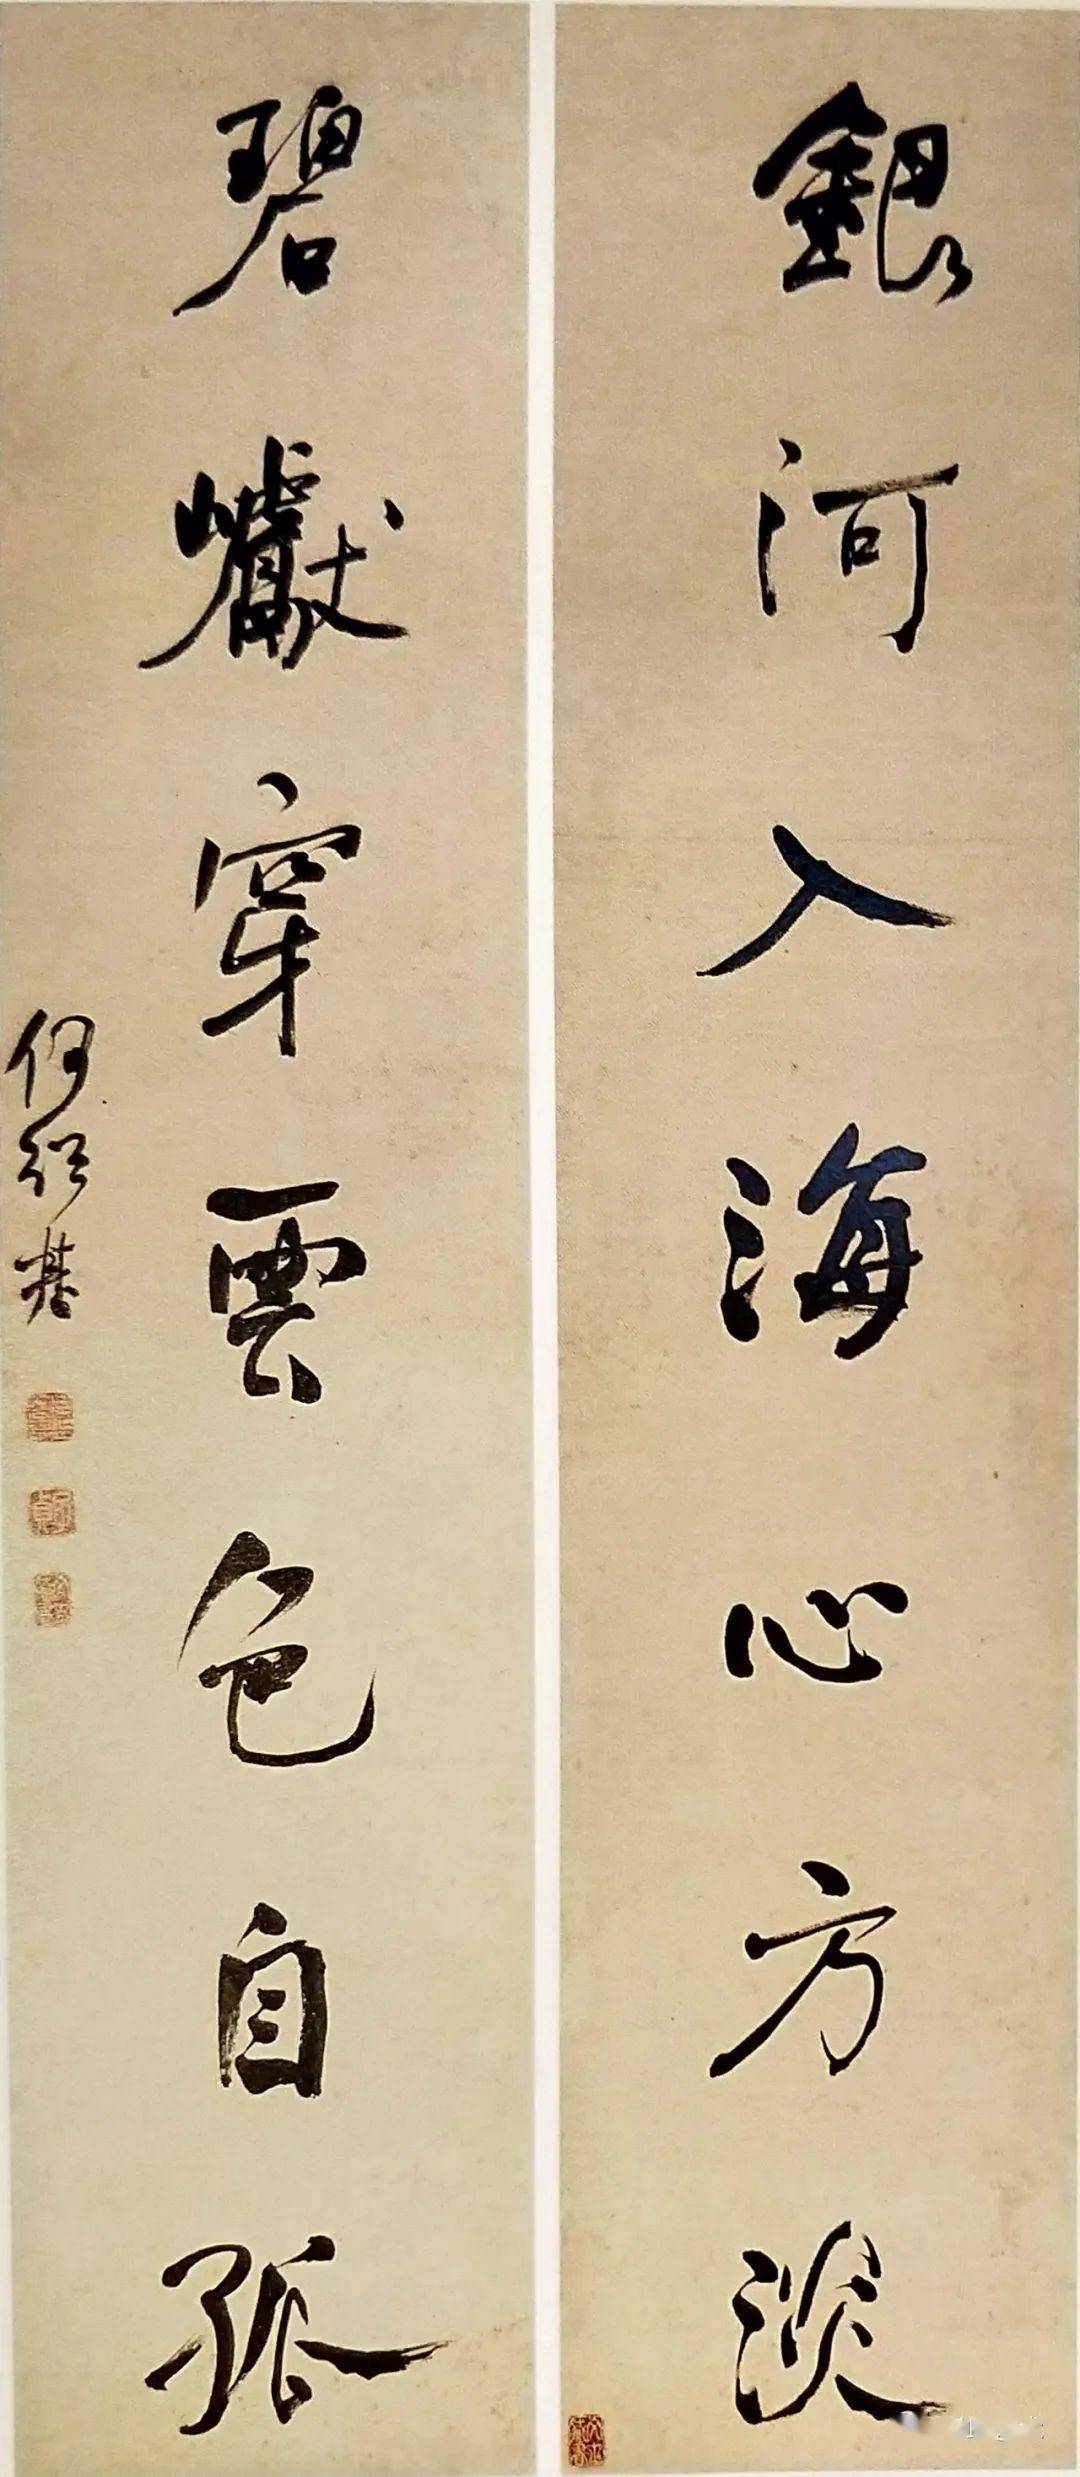 銀河入海心方淡
碧巘穿雲色自孤
何紹基